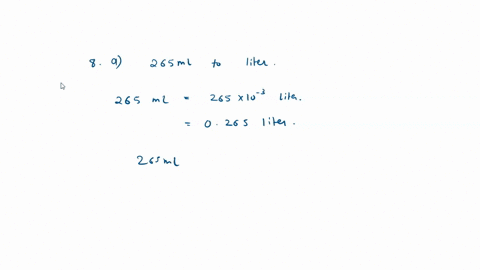 8. a) 265 ml to liter.
265 ml = 265 × 10⁻³ liter.
= 0.265 liter.
265 mL